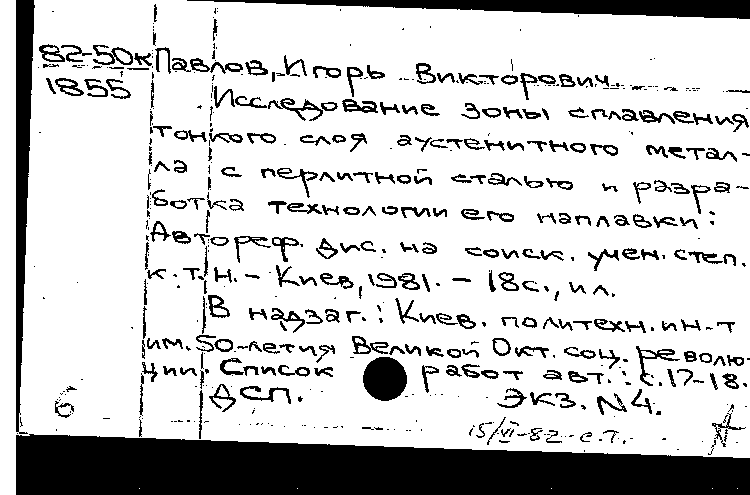 82-50к Павлов, Игорь Викторович.
1855 Исследование зоны сплавления
тонкого слоя аустенитного метал-
ла с перлитной сталью и разра-
ботка технологии его наплавки:
Автореф. дис. на соиск. учен. степ.
к.т.н. - Киев, 1981. - 18с., ил.
В надзаг.: Киев. политехн. ин-т
им. 50-летия Великой Окт. соц. револю-
ции. Список работ авт.: с. 17-18.
ДСП. Экз. N4.
б
15/VI-82 с.т.